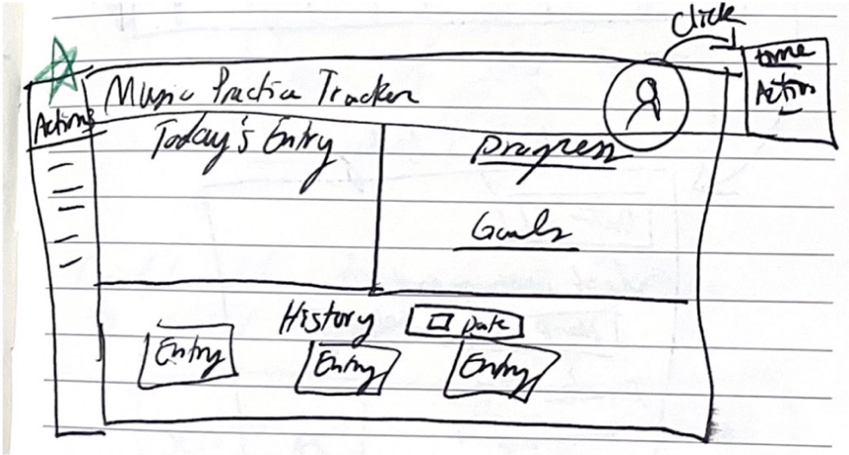 Click
Music Practice Tracker
Actions
Action
Today's Entry
Progress
Goals
History
Date
Entry
Entry
Entry